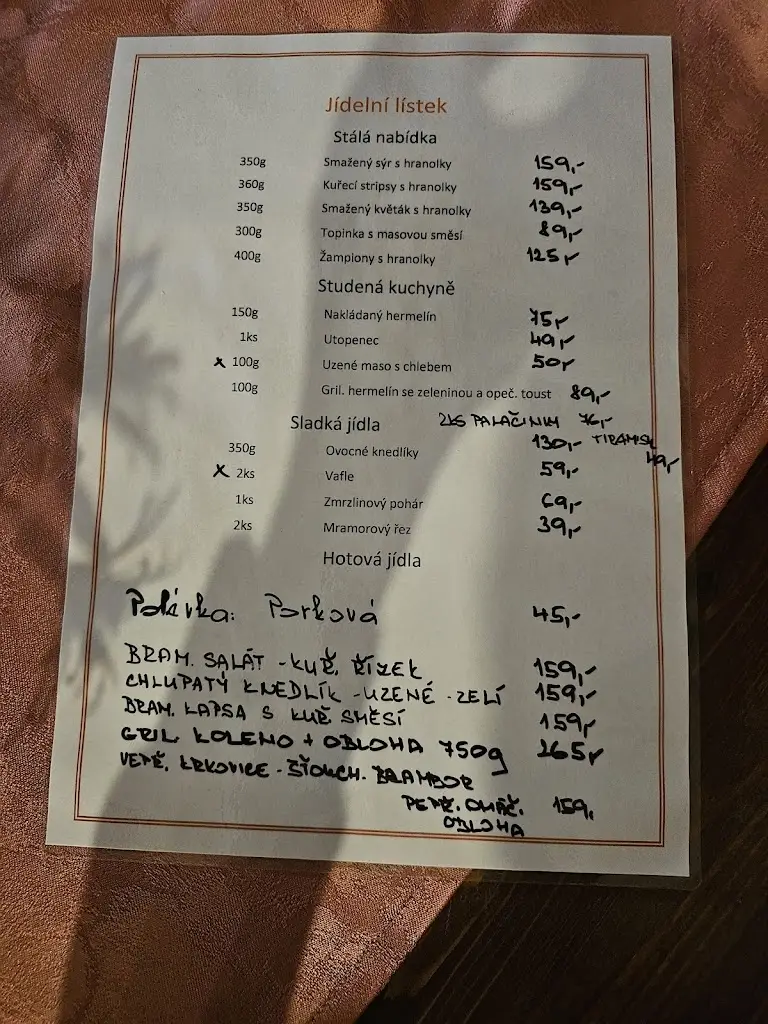 Jídelní lístek
Stálá nabídka
350g Smažený sýr s hranolky 159,-
360g Kuřecí stripsy s hranolky 159,-
350g Smažený květák s hranolky 139,-
300g Topinka s masovou směsí 89,-
400g Žampiony s hranolky 125,-
Studená kuchyně
150g Nakládaný hermelín 75,-
1ks Utopenec 49,-
x 100g Uzené maso s chlebem 50,-
100g Gril. hermelín se zeleninou a opeč. toust 89,-
Sladká jídla 2KS PALAČINKY 76,-
350g Ovocné knedlíky 130,- TIRAMISU 49,-
x 2ks Vafle 59,-
1ks Zmrzlinový pohár 69,-
2ks Mramorový řez 39,-
Hotová jídla
Polévka: Porková 45,-
BRAM. SALÁT - KUŘ. ŘÍZEK 159,-
CHLUPATÝ KNEDLÍK - UZENÉ - ZELÍ 159,-
BRAM. KAPSA S KUŘ SMĚSÍ 159,-
GRIL. KOLENO + OBLOHA 750g 265,-
VEPŘ. KRKOVICE - ŠŤOUCH. BRAMBOR
PEPŘ. OMÁČ. 159,
OBLOHA